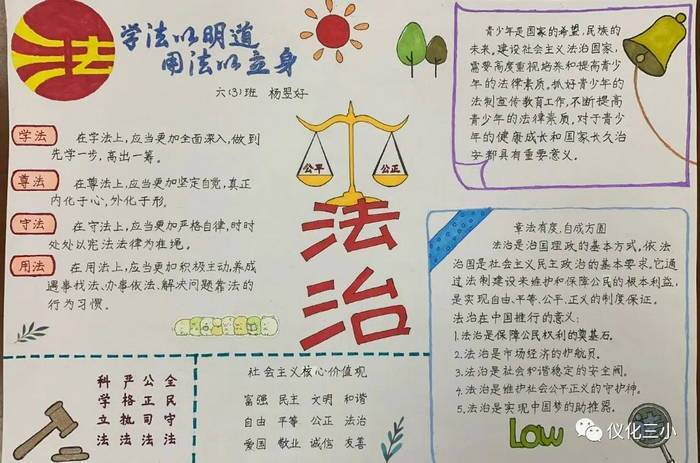 法
学法以明道
用法以立身
六(3)班 杨翌好
学法 在学法上,应当更加全面深入,做到
先学一步,高出一筹。
尊法 在尊法上,应当更加坚定自觉,真正
内化于心,外化于形。
守法 在守法上,应当更加严格自律,时时
处处以宪法法律为准绳。
用法 在用法上,应当更加积极主动,养成
遇事找法、办事依法、解决问题靠法的
行为习惯。
公平 公正
法治
青少年是国家的希望,民族的
未来。建设社会主义法治国家,
需要高度重视培养和提高青少
年的法律素质。抓好青少年的
法制宣传教育工作,不断提高
青少年的法律素质,对于青少
年的健康成长和国家长久治
安都具有重要意义。
章法有度,自成方圆
法治是治国理政的基本方式,依法
治国是社会主义民主政治的基本要求。它通
过法制建设来维护和保障公民的根本利益,
是实现自由、平等、公平、正义的制度保证。
法治在中国推行的意义:
1.法治是保障公民权利的奠基石。
2.法治是市场经济的护航员。
3.法治是社会和谐稳定的安全阀。
4.法治是维护社会公平正义的守护神。
5.法治是实现中国梦的助推器。
Low
科学立法
严格执法
公正司法
全民守法
社会主义核心价值观
富强 民主 文明 和谐
自由 平等 公正 法治
爱国 敬业 诚信 友善
仪化三小